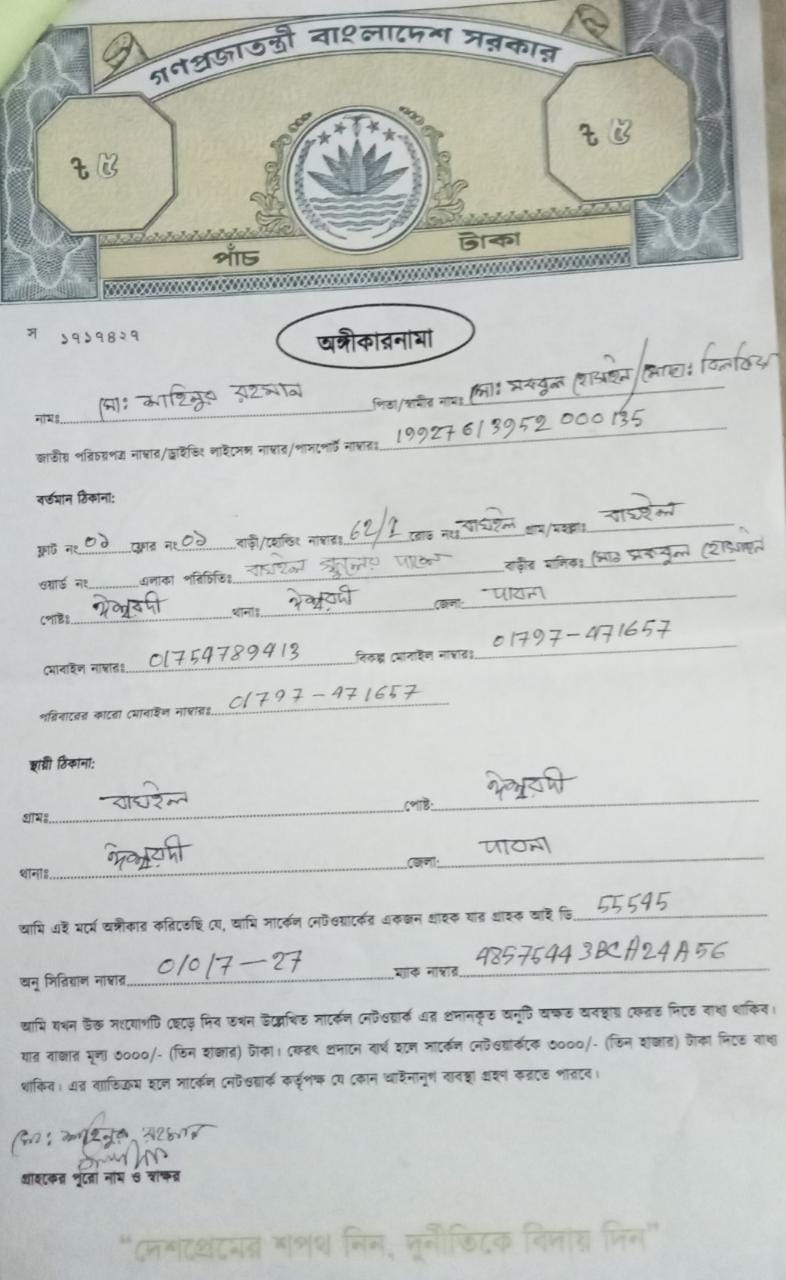 গণপ্রজাতন্ত্রী বাংলাদেশ সরকার
৳ ৫ ৳ ৫
পাঁচ টাকা
স ১৭১৭৪২৭
অঙ্গীকারনামা
নামঃ মো: কাহিনুর রহমান পিতা/স্বামীর নামঃ মো: মকবুল হোসেন/মাতা:
জাতীয় পরিচয়পত্র নাম্বার/ড্রাইভিং লাইসেন্স নাম্বার/পাসপোর্ট নাম্বারঃ 19927613952000135
বর্তমান ঠিকানা:
ফ্লাট নং ০১ ফ্লোর নং ০১ বাড়ী/হোল্ডিং নাম্বারঃ 62/1 রোড নংঃ বাঘইল গ্রাম/মহল্লাঃ বাঘইল
ওয়ার্ড নং এলাকা পরিচিতিঃ বাঘইল স্কুলের পাশে বাড়ীর মালিকঃ মোঃ মকবুল হোসেন
পোষ্টঃ ঈশ্বরদী থানাঃ ঈশ্বরদী জেলা: পাবনা
মোবাইল নাম্বারঃ 01754789413 বিকল্প মোবাইল নাম্বারঃ 01797-471657
পরিবারের কারো মোবাইল নাম্বারঃ 01797-471657
স্থায়ী ঠিকানা:
গ্রামঃ বাঘইল পোষ্ট: ঈশ্বরদী
থানাঃ ঈশ্বরদী জেলা: পাবনা
আমি এই মর্মে অঙ্গীকার করিতেছি যে, আমি সার্কেল নেটওয়ার্কের একজন গ্রাহক যার গ্রাহক আই ডি 55545
অনু সিরিয়াল নাম্বার 01017-27 ম্যাক নাম্বার 48575443BCA24A56
আমি যখন উক্ত সংযোগটি ছেড়ে দিব তখন উল্লেখিত সার্কেল নেটওয়ার্ক এর প্রদানকৃত অনুটি অক্ষত অবস্থায় ফেরত দিতে বাধ্য থাকিব।
যার বাজার মূল্য ৩০০০/- (তিন হাজার) টাকা। ফেরৎ প্রদানে ব্যর্থ হলে সার্কেল নেটওয়ার্ককে ৩০০০/- (তিন হাজার) টাকা দিতে বাধ্য
থাকিব। এর ব্যতিক্রম হলে সার্কেল নেটওয়ার্ক কর্তৃপক্ষ যে কোন আইনানুগ ব্যবস্থা গ্রহণ করতে পারবে।
মো: কাহিনুর রহমান
গ্রাহকের পুরো নাম ও স্বাক্ষর
“দেশপ্রেমের শপথ নিন, দুর্নীতিকে বিদায় দিন”